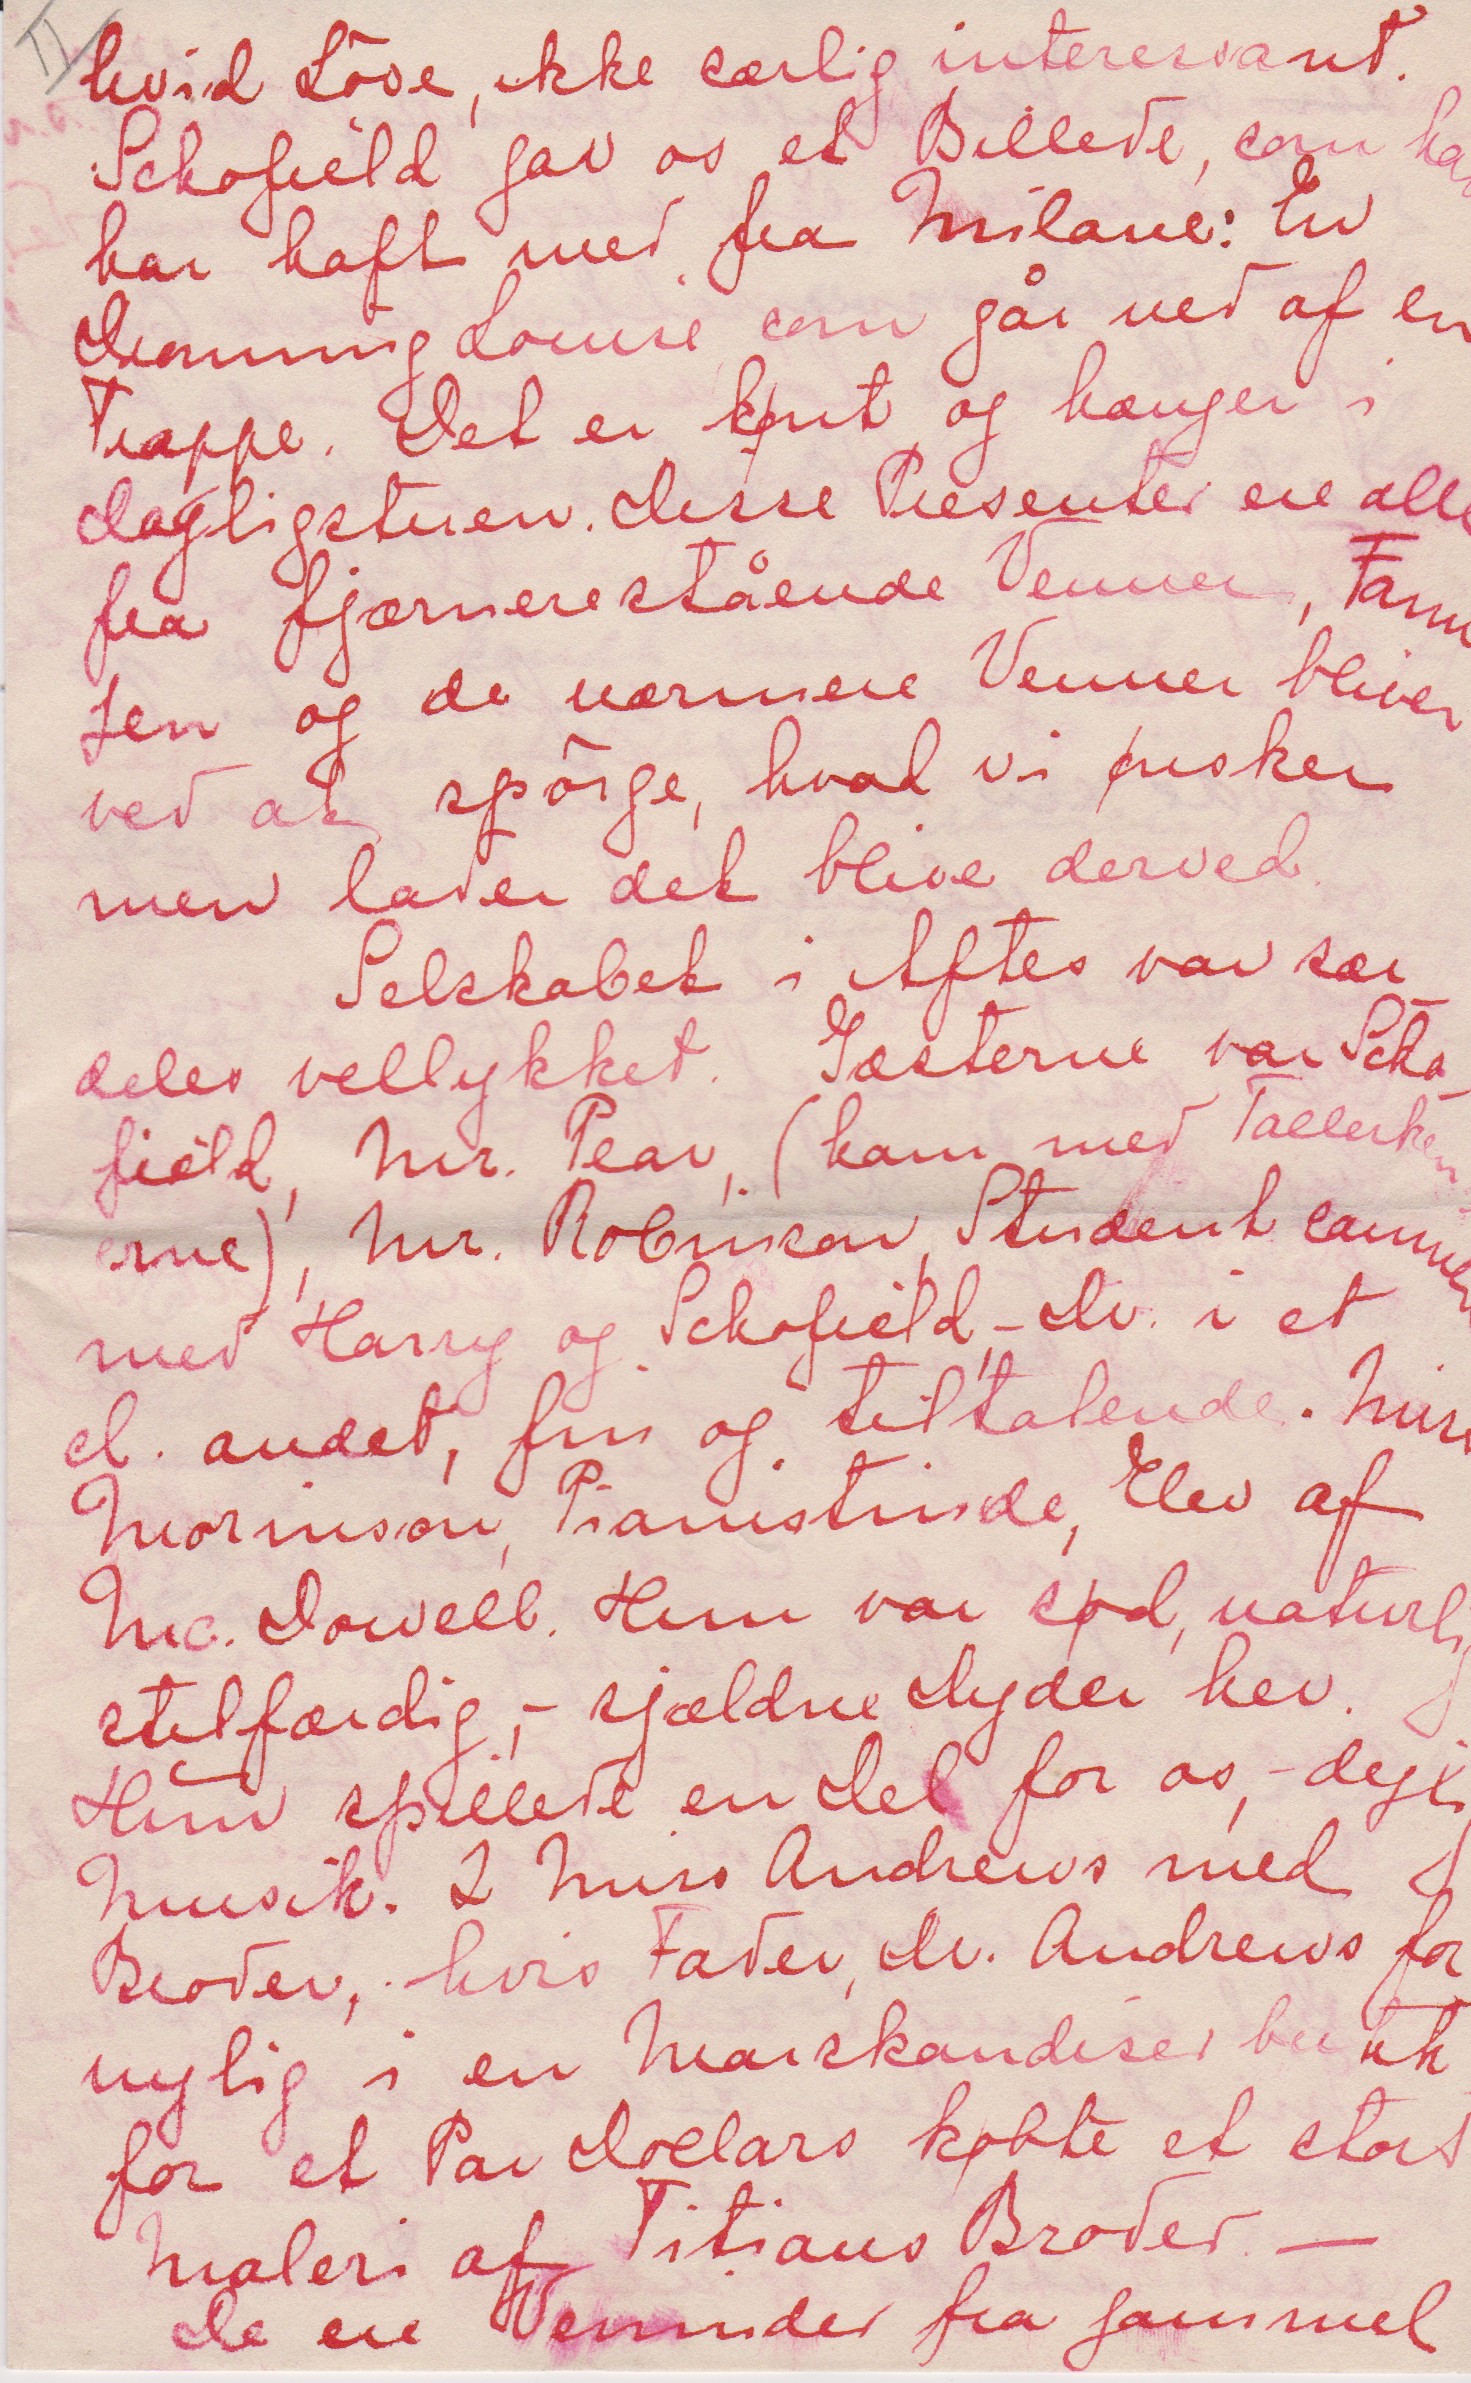 II
hvid Löve, ikke særlig interessant.
Schofield gav os et Billede, som han
har haft med fra Milano: En
Dronning Louise som går ned af en
Trappe. Det er kønt og hænger i
Dagligstuen. Disse Presenter ere alle
fra fjærnerestående Venner, Fami
lien og de nærmere Venner bliver
ved at spörge, hvad vi ønsker
men lader det blive derved.
Selskabet i Aftes var sær_
deles vellykket. Gæsterne var Scho_
field, Mr. Pear, (kom med Tallerken
erne), Mr. Robinson, Student sammen
med Harry og Schofield, - Dr. i et
el. andet, fin og tiltalende. Miss
Morrison, Pianistinde, Elev af
Mc. Dowell. Hun var sød, naturlig
stilfærdig, - sjældne Dyder her.
Hun spillede en Del for os, - dejlig
Musik. 2 Miss Andrews med
Broder, hvis Fader, Dr. Andrews for
nylig i en Marskandiserbutik
for et Par Dollars købte et stort
Maleri af Titians Broder. —
De ere Veninder fra gammel